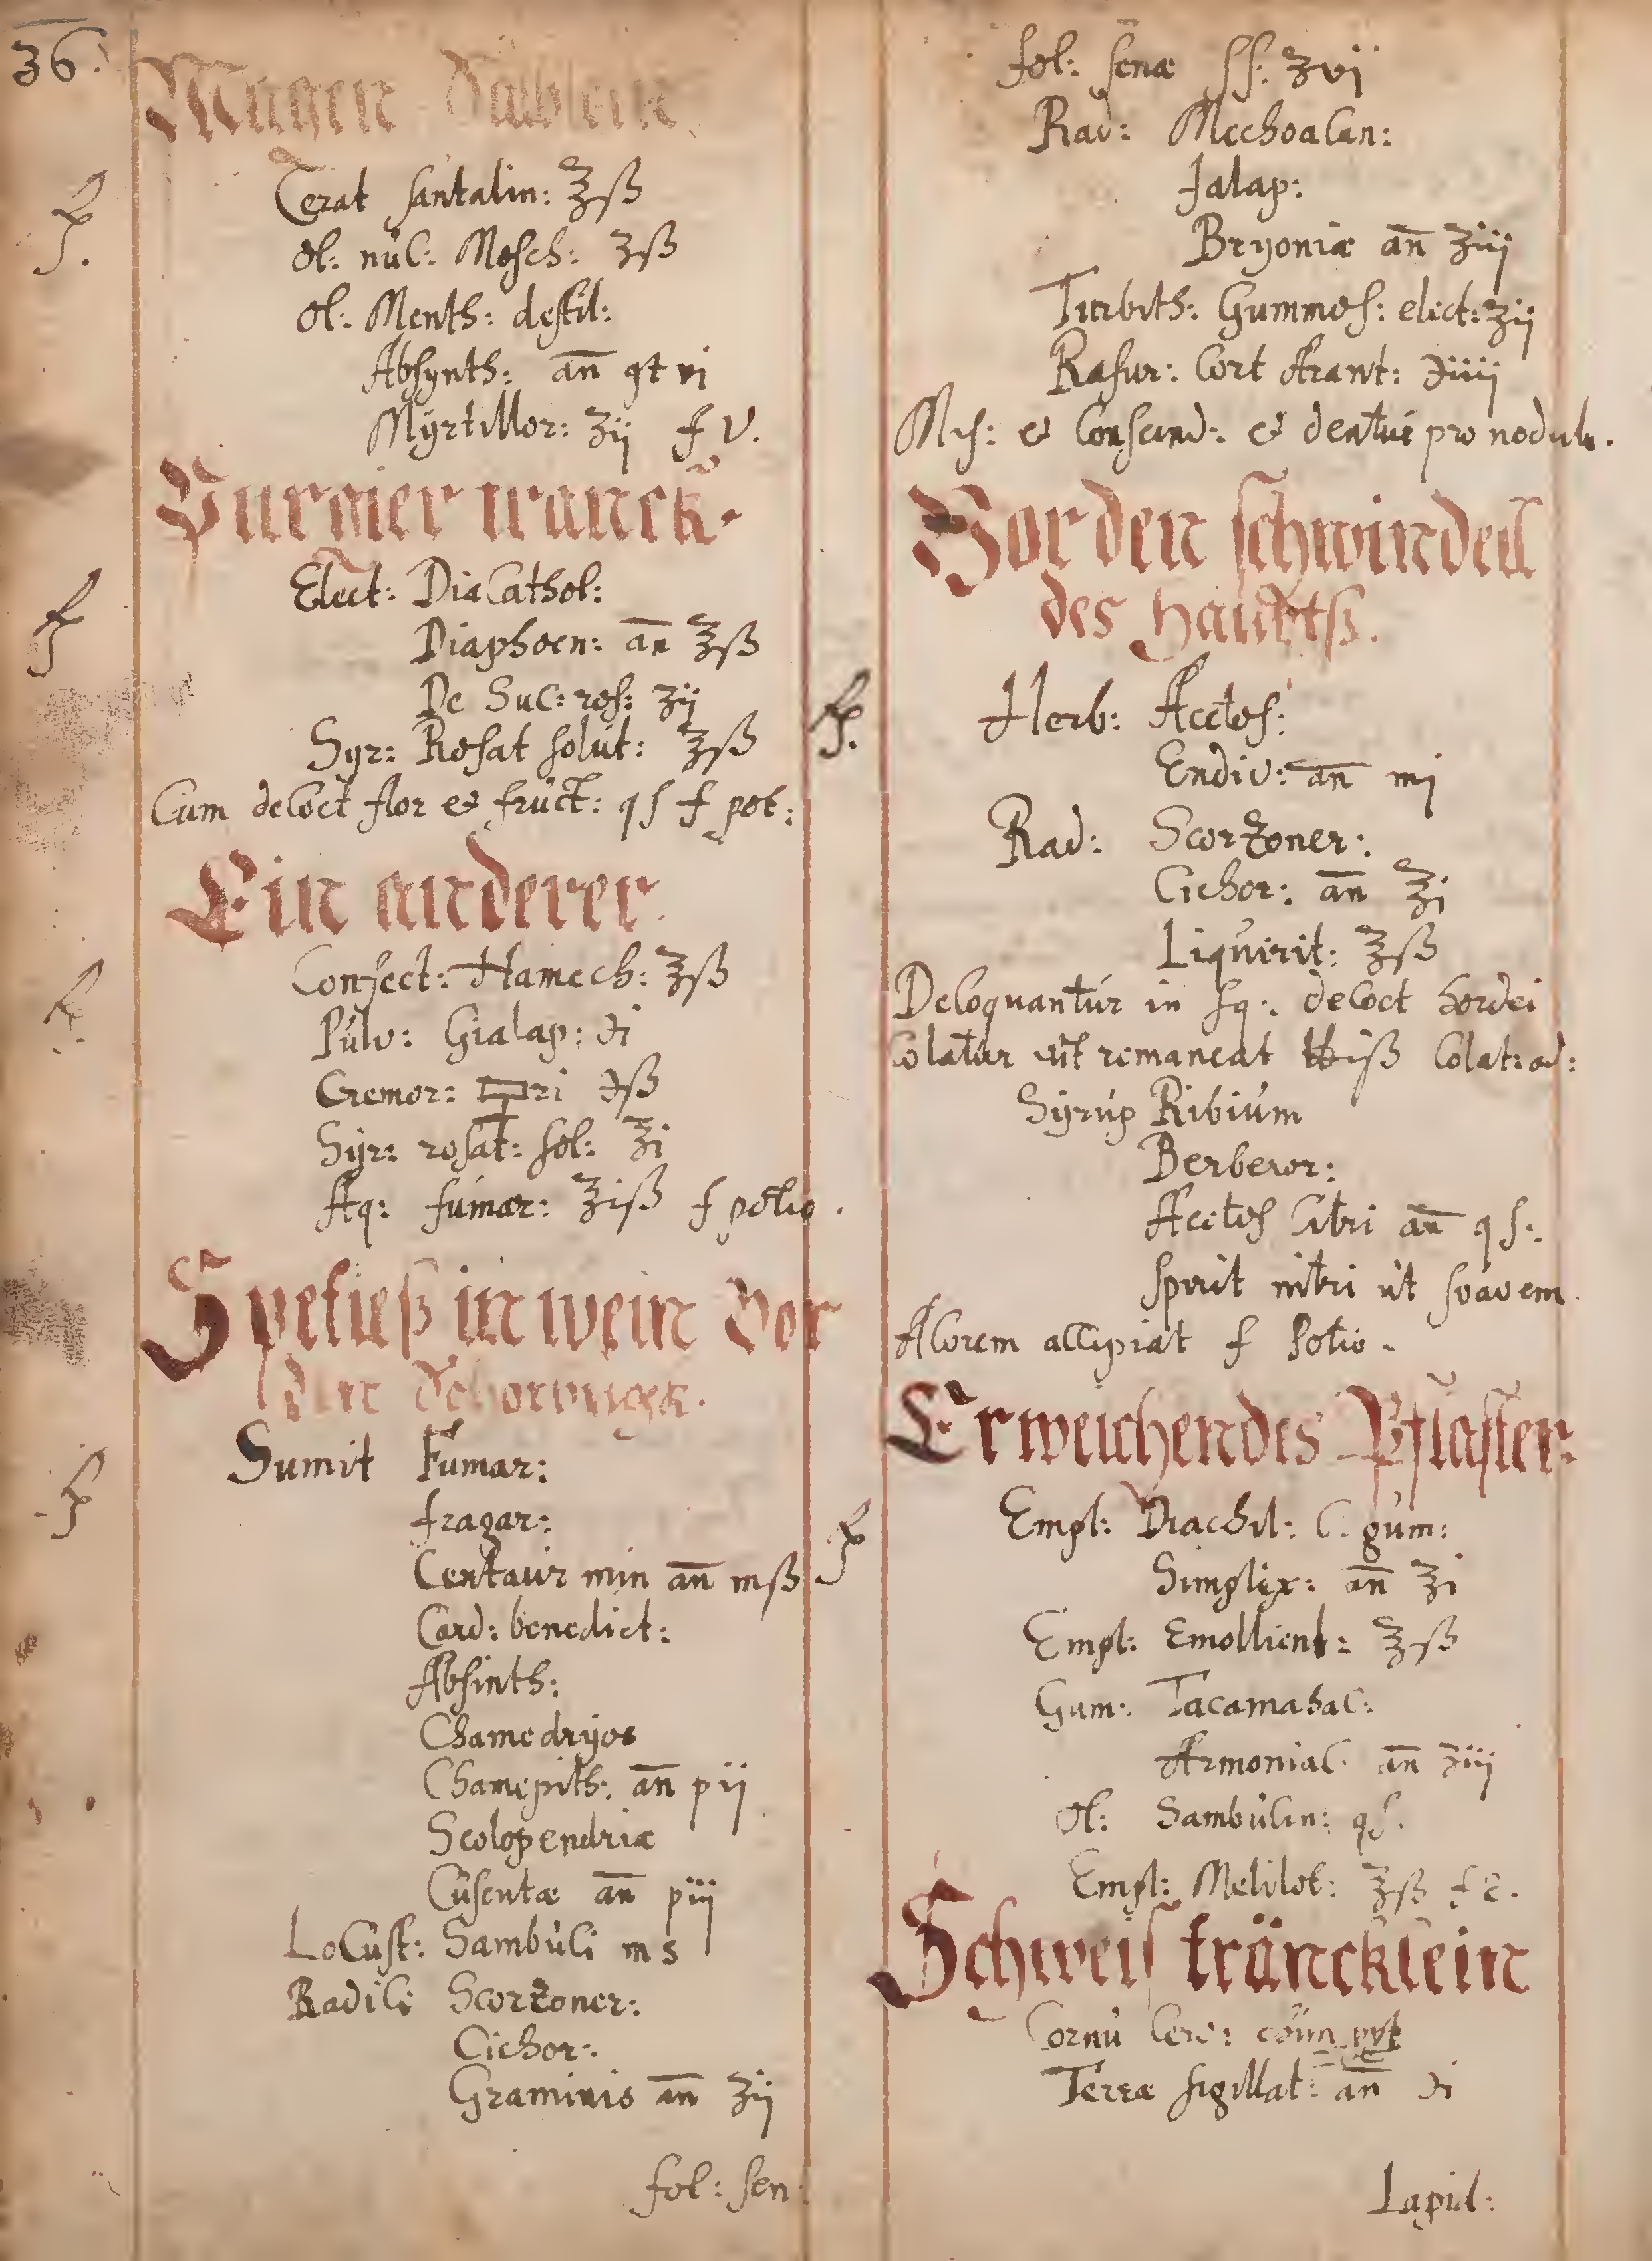 36.
Magen Sälblein
℞. Cerat santalin: ℥ß
ol: nuc: Mosch: ʒß
ol: Menth: destil:
Absynth: an̄ gt vi
Myrtillor: ʒij f V.
Purgier tranck.
℞ Elect: DiaCathol:
Diaphoen: an̄ ℥ß
De Suc: ros: ʒij
Syr: Rosat solut: ℥ß
Cum decoct flor et fruct: q s f pot:
Ein anderer.
℞. Confect: Hamech: ℥ß
Pulv: Gialap: ℈i
Cremor: 🜿ri ℈ß
Syr: rosat: sol: ℥i
Aq: fumar: ℥iß f potio.
Spetieß in wein Vor
den Schorbugk.
℞ Sumit Fumar:
fragar:
Centaur min an̄ mß
Card: benedict:
Absinth:
Chamedryos
Chamepith: an̄ pij
Scolopendriæ
Cusentæ an̄ piij
Locust: Sambuci ms
Radici Scorzoner:
Cichor:
Graminis an̄ ℥ij
fol: sen:
fol: senæ ss: ʒvj
Rad: Mechoacan:
Jalap:
Bryoniæ an̄ ʒiij
Turbith: Gummos: elect: ʒij
Rasur: Cort Arant: ℈iiij
Mis: et Conscind: et dentur pro nodulo.
Vor den schwindell
des Haubtß.
℞. Herb: Acetos:
Endiv: an̄ mj
Rad: Scorzoner:
Cichor: an̄ ℥i
Liquirit: ℥ß
Decoquantur in sq: decoct hordei
Colatur ut remaneat ℔iß Colat: ad:
Syrup Ribium
Berberor:
Acetos Citri an̄ q s:
Spirit nitri ut suavem
Acorem accipiat f Potio.
Erweichendes Pflaster.
℞ Empl: Diachil: C. gum:
Simplex: an̄ ℥i
Empl: Emollient: ℥ß
Gum: Tacamahac:
Armoniac: an̄ ʒiij
Ol: Sambucin: qs.
Empl: Melilot: ℥ß f E.
Schweis träncklein
Cornu Cerv: ppt
Terræ sigillat: an̄ ℈i
Lapid: